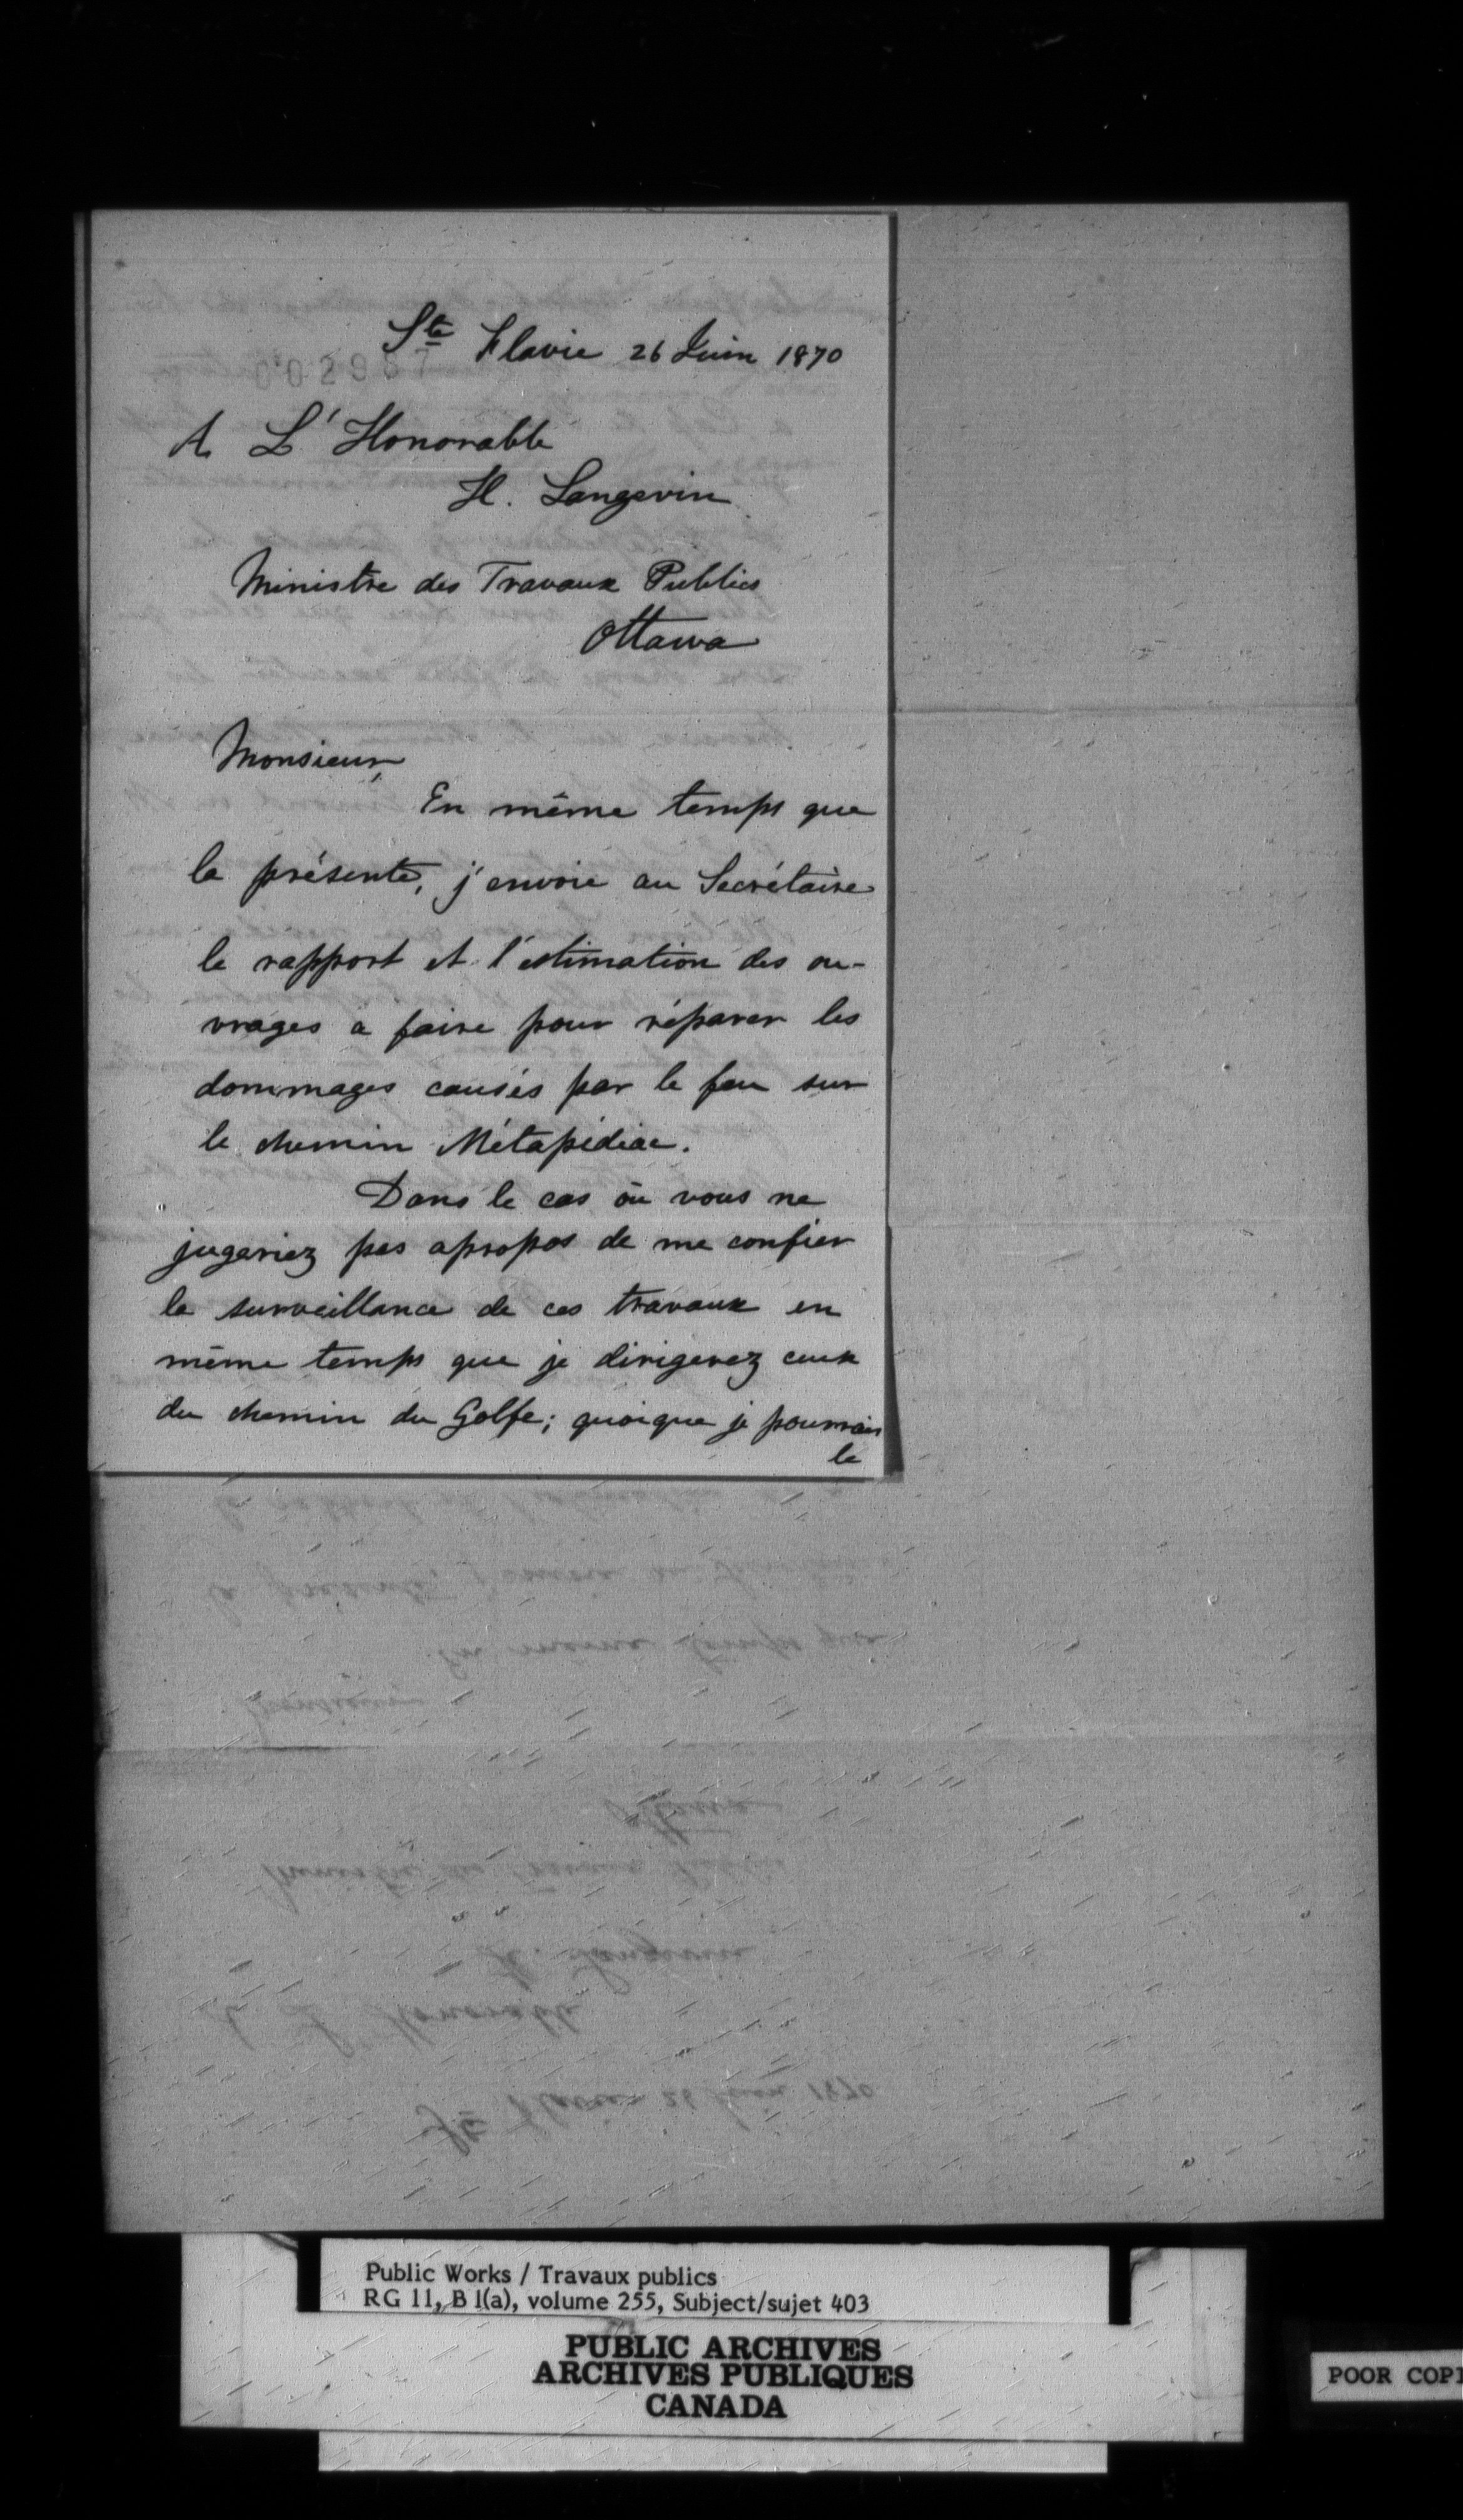 Ste Flavie 26 Juin 1870
A L'Honorable
H. Langevin
Ministre des Travaux Publics
Ottawa
Monsieur,
En même temps que
la présente, j'envoie au Secrétaire
le rapport et l'estimation des ou-
vrages a faire pour réparer les
dommages causés par le feu sur
le chemin Métapédiac.
Dans le cas où vous ne
jugeriez pas apropos de me confier
la surveillance de ces travaux en
même temps que je dirigerez ceux
du chemin du Golfe; quoique je pourrais
le
Public Works / Travaux publics
RG 11, B 1(a), volume 255, Subject/sujet 403
PUBLIC ARCHIVES
ARCHIVES PUBLIQUES
CANADA
POOR COPY